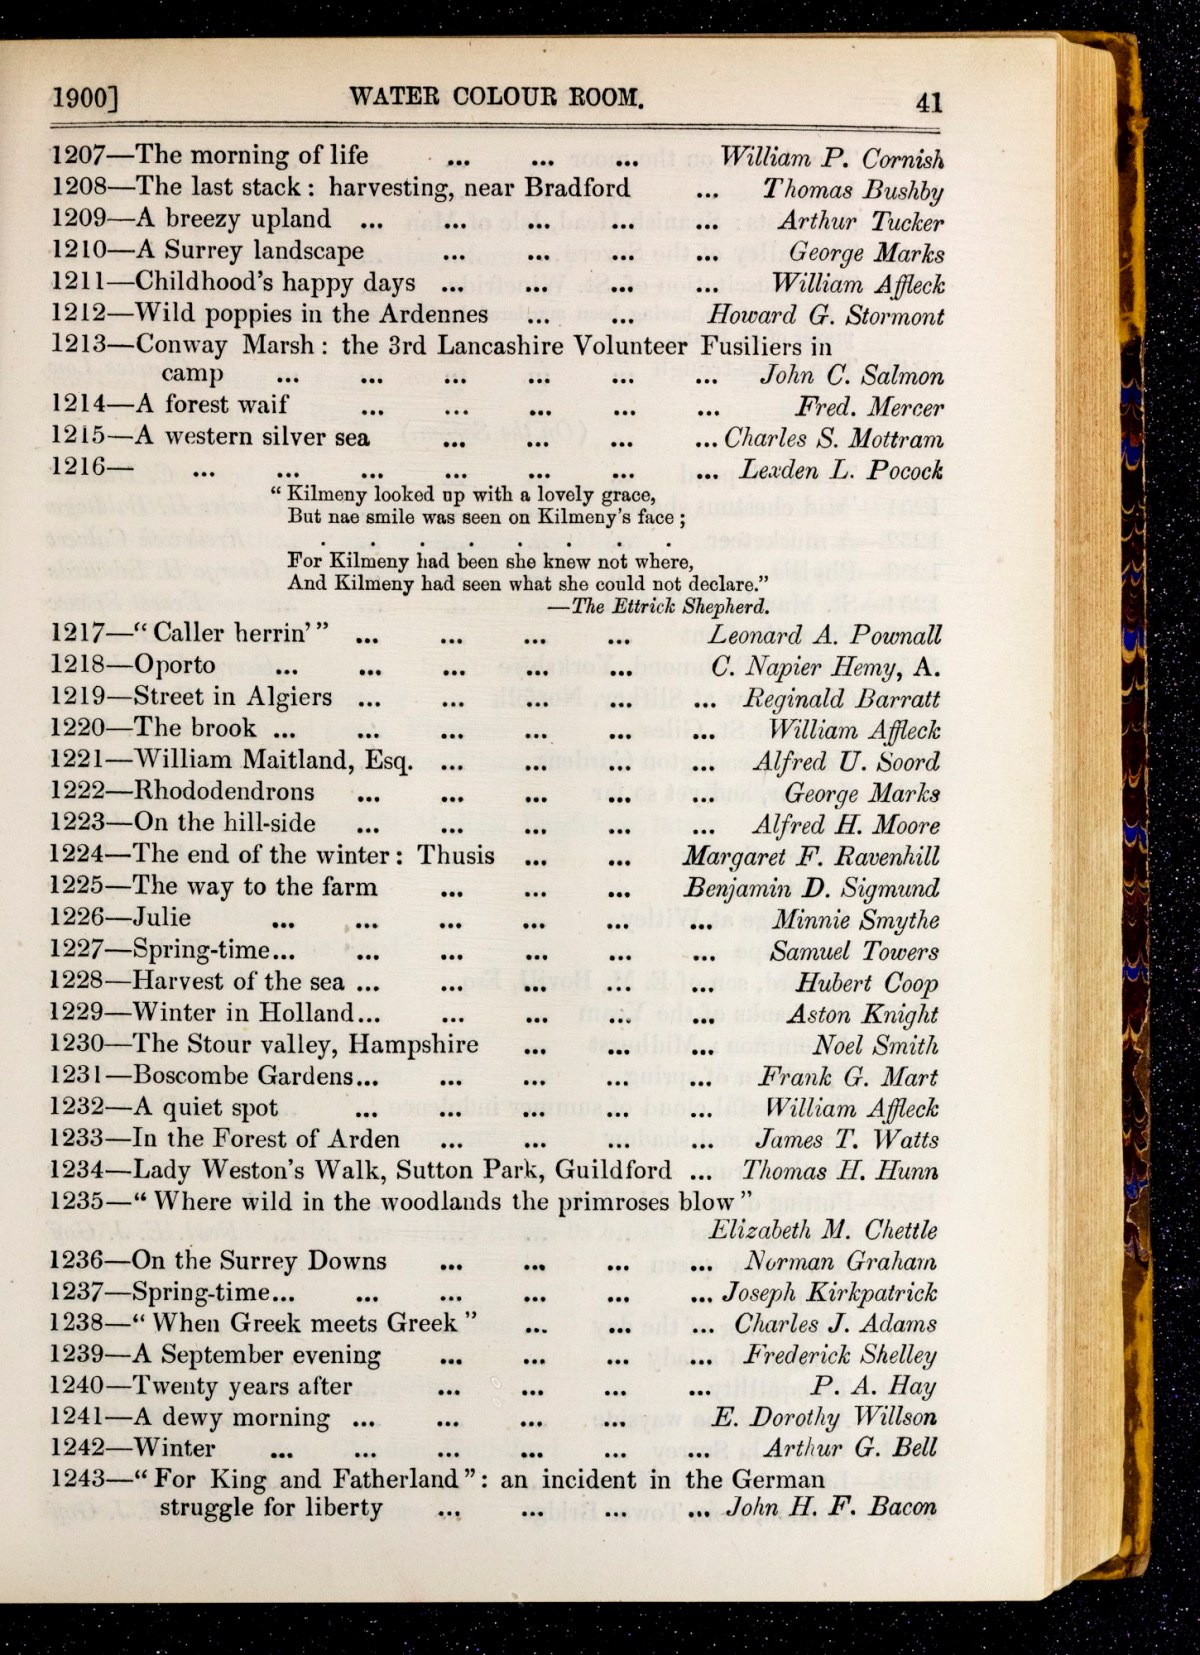 1900] WATER COLOUR ROOM. 41
1207—The morning of life ... ... ... William P. Cornish
1208—The last stack : harvesting, near Bradford ... Thomas Bushby
1209—A breezy upland ... ... ... ... ... Arthur Tucker
1210—A Surrey landscape ... ... ... ... George Marks
1211—Childhood's happy days ... ... ... ... William Affleck
1212—Wild poppies in the Ardennes ... ... Howard G. Stormont
1213—Conway Marsh : the 3rd Lancashire Volunteer Fusiliers in
camp ... ... ... ... ... ... John C. Salmon
1214—A forest waif ... ... ... ... ... Fred. Mercer
1215—A western silver sea ... ... ... ... Charles S. Mottram
1216— ... ... ... ... ... ... ... Lexden L. Pocock
“ Kilmeny looked up with a lovely grace,
But nae smile was seen on Kilmeny's face ;
. . . . . . . .
For Kilmeny had been she knew not where,
And Kilmeny had seen what she could not declare.”
—The Ettrick Shepherd.
1217—“ Caller herrin' ” ... ... ... ... Leonard A. Pownall
1218—Oporto ... ... ... ... ... C. Napier Hemy, A.
1219—Street in Algiers ... ... ... ... ... Reginald Barratt
1220—The brook ... ... ... ... ... ... William Affleck
1221—William Maitland, Esq. ... ... ... ... Alfred U. Soord
1222—Rhododendrons ... ... ... ... ... George Marks
1223—On the hill-side ... ... ... ... ... Alfred H. Moore
1224—The end of the winter : Thusis ... ... Margaret F. Ravenhill
1225—The way to the farm ... ... ... Benjamin D. Sigmund
1226—Julie ... ... ... ... ... ... Minnie Smythe
1227—Spring-time... ... ... ... ... ... Samuel Towers
1228—Harvest of the sea ... ... ... ... ... Hubert Coop
1229—Winter in Holland... ... ... ... ... Aston Knight
1230—The Stour valley, Hampshire ... ... ... Noel Smith
1231—Boscombe Gardens... ... ... ... ... Frank G. Mart
1232—A quiet spot ... ... ... ... ... William Affleck
1233—In the Forest of Arden ... ... ... ... James T. Watts
1234—Lady Weston's Walk, Sutton Park, Guildford ... Thomas H. Hunn
1235—“ Where wild in the woodlands the primroses blow ”
Elizabeth M. Chettle
1236—On the Surrey Downs ... ... ... ... Norman Graham
1237—Spring-time... ... ... ... ... ... Joseph Kirkpatrick
1238—“ When Greek meets Greek ” ... ... ... Charles J. Adams
1239—A September evening ... ... ... ... Frederick Shelley
1240—Twenty years after ... ... ... ... P. A. Hay
1241—A dewy morning ... ... ... ... E. Dorothy Willson
1242—Winter ... ... ... ... ... ... Arthur G. Bell
1243—“ For King and Fatherland ” : an incident in the German
struggle for liberty ... ... ... ... John H. F. Bacon